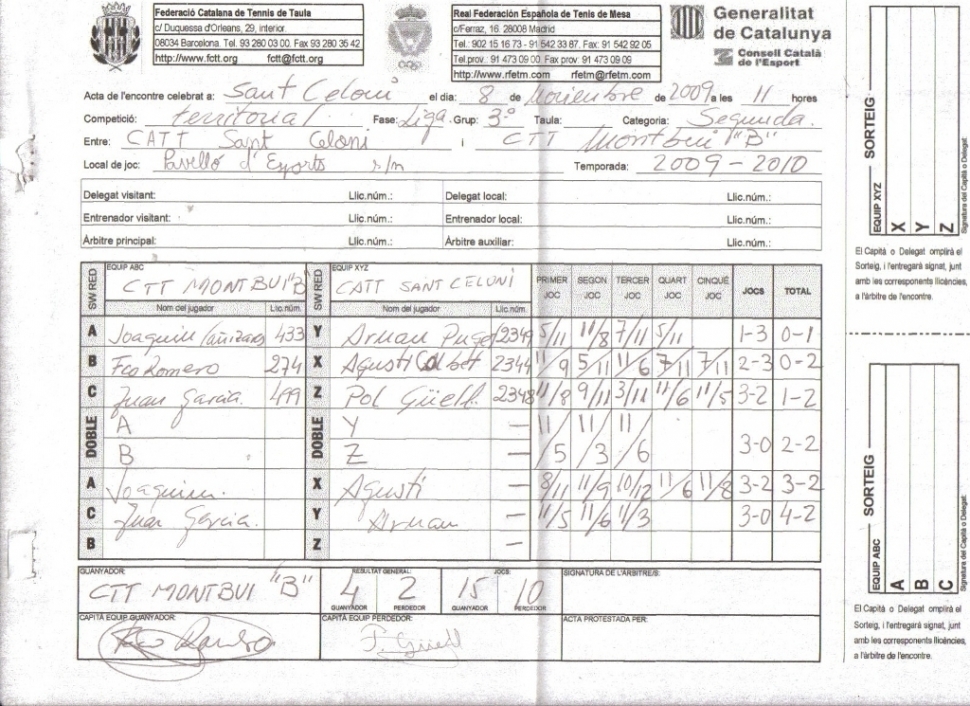 Federació Catalana de Tennis de Taula
c/ Duquessa d'Orleans, 29, interior.
08034 Barcelona. Tel. 93 280 03 00. Fax 93 280 35 42
http://www.fctt.org fctt@fctt.org
Real Federación Española de Tenis de Mesa
c/Ferraz, 16. 28008 Madrid
Tel.: 902 15 16 73 - 91 542 33 87. Fax: 91 542 92 05
Tel.prov.: 91 473 09 00. Fax prov. 91 473 09 09
http://www.rfetm.com rfetm@rfetm.com
Generalitat de Catalunya
Consell Català de l'Esport
Acta de l'encontre celebrat a: Sant Celoni el dia: 8 de Noviembre de 2009 a les 11 hores
Competició: territorial Fase: Liga Grup: 3º Taula: Categoria: Segunda.
Entre: CATT Sant Celoni i CTT Montbui "B"
Local de joc: Pavelló d'Esports s/n Temporada: 2009-2010
Delegat visitant: Llic.núm.: Delegat local: Llic.núm.:
Entrenador visitant: Llic.núm.: Entrenador local: Llic.núm.:
Àrbitre principal: Llic.núm.: Àrbitre auxiliar: Llic.núm.:
SW RED EQUIP ABC CTT MONTBUI "B" SW RED EQUIP XYZ CATT SANT CELONI PRIMER JOC SEGON JOC TERCER JOC QUART JOC CINQUÈ JOC JOCS TOTAL
Nom del jugador Llic.núm. Nom del jugador Llic.núm.
A Joaquim 433 Y Arnau Puget 2349 5/11 11/8 7/11 5/11 1-3 0-1
B Fco Romero 274 X Agustí Calbet 2344 11/9 5/11 11/6 7/11 7/11 2-3 0-2
C Juan Garcia. 499 Z Pol Güell 2348 11/8 9/11 3/11 11/6 11/5 3-2 1-2
DOBLE A B DOBLE Y Z — — 11/5 11/3 11/6 3-0 2-2
A Joaquim. X Agustí — 8/11 11/9 10/12 11/6 11/8 3-2 3-2
C Juan Garcia. Y Arnau — 11/5 11/6 11/3 3-0 4-2
B Z —
GUANYADOR: CTT MONTBUI "B" RESULTAT GENERAL: 4 2 JOCS: 15 10 SIGNATURA DE L'ÀRBITRE/S:
GUANYADOR PERDEDOR GUANYADOR PERDEDOR
CAPITÀ EQUIP GUANYADOR: CAPITÀ EQUIP PERDEDOR: F. Güell ACTA PROTESTADA PER:
SORTEIG
EQUIP XYZ
X
Y
Z
Signatura del Capità o Delegat
El Capità o Delegat omplirà el
Sorteig, i l'entregarà signat, junt
amb les corresponents llicències,
a l'àrbitre de l'encontre.
SORTEIG
EQUIP ABC
A
B
C
Signatura del Capità o Delegat
El Capità o Delegat omplirà el
Sorteig, i l'entregarà signat, junt
amb les corresponents llicències,
a l'àrbitre de l'encontre.